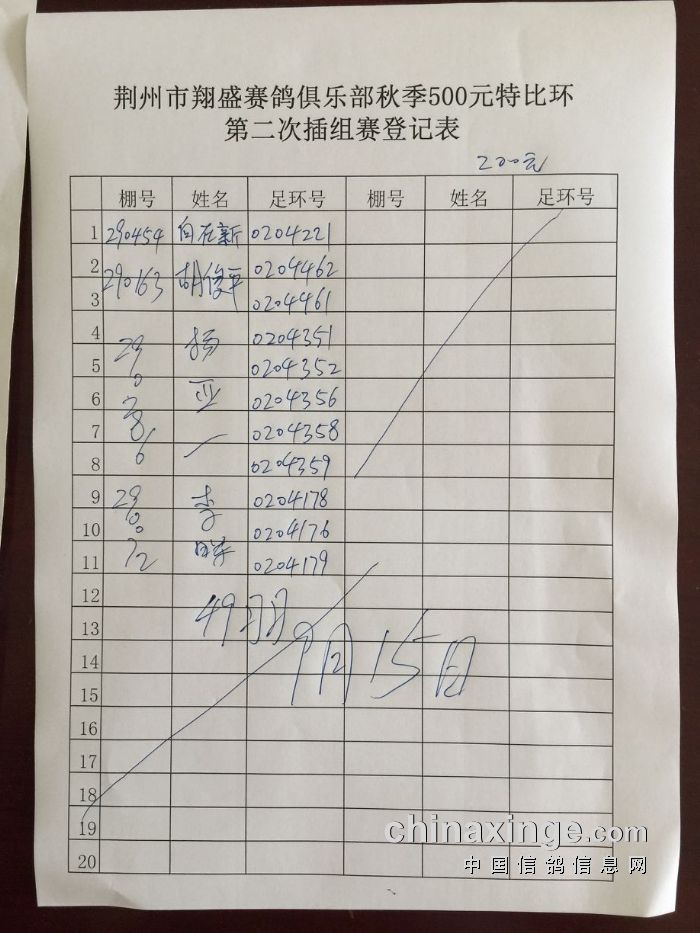 荆州市翔盛赛鸽俱乐部秋季500元特比环
第二次插组赛登记表
200元
棚号 姓名 足环号 棚号 姓名 足环号
1 290454 向在新 0204221
2 290163 胡俊平 0204462
3 0204461
4 0204351
5 杨 0204352
6 亚 0204356
7 0204358
8 一 0204359
9 李 0204178
10 0204176
11 0204179
12
13 49羽
14 9月15日
15
16
17
18
19
20
chinaxinge.com
中国信鸽信息网